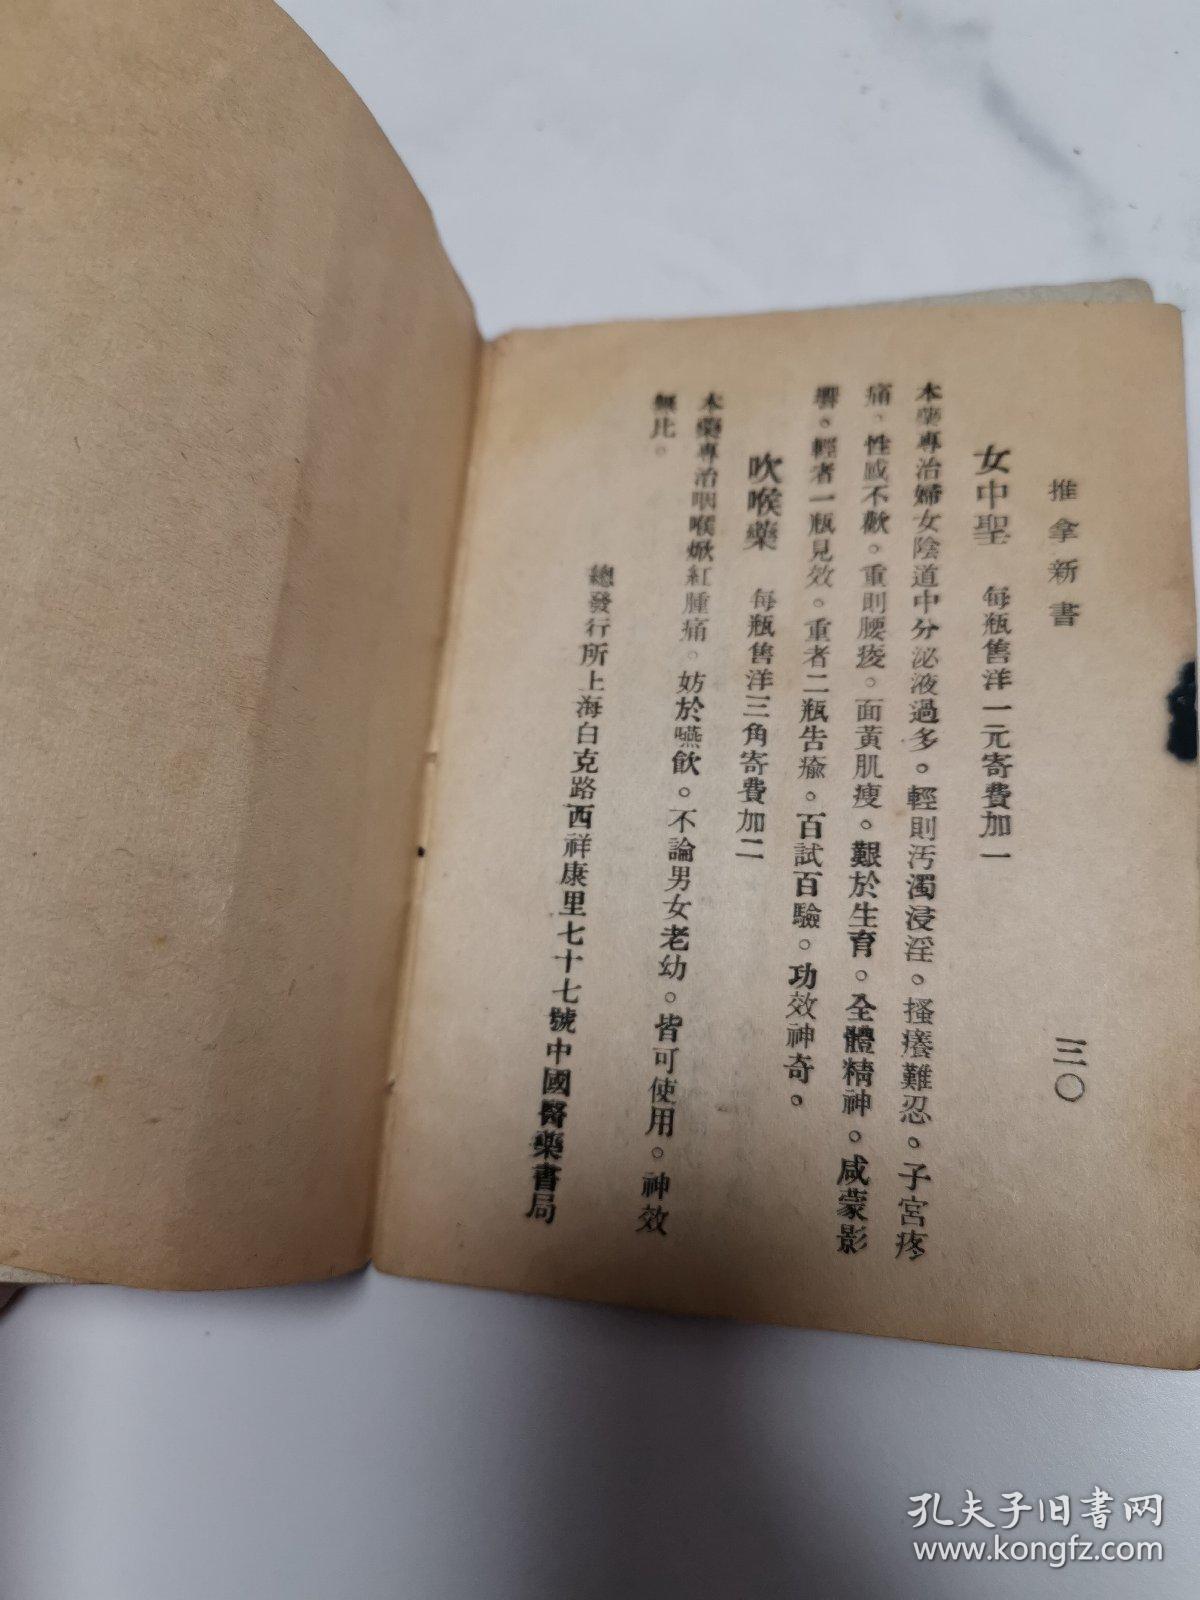 推拿新書 三〇
女中聖 每瓶售洋一元寄費加一
本藥專治婦女陰道中分泌液過多。輕則汚濁浸淫。搔癢難忍。子宮疼
痛。性感不歡。重則腰痠。面黃肌瘦。艱於生育。全體精神。咸蒙影
響。輕者一瓶見效。重者二瓶告瘉。百試百驗。功效神奇。
吹喉藥 每瓶售洋三角寄費加二
本藥專治咽喉焮紅腫痛。妨於嚥飲。不論男女老幼。皆可使用。神效
無比。
總發行所上海白克路西祥康里七十七號中國醫藥書局
孔夫子旧书网
www.kongfz.com